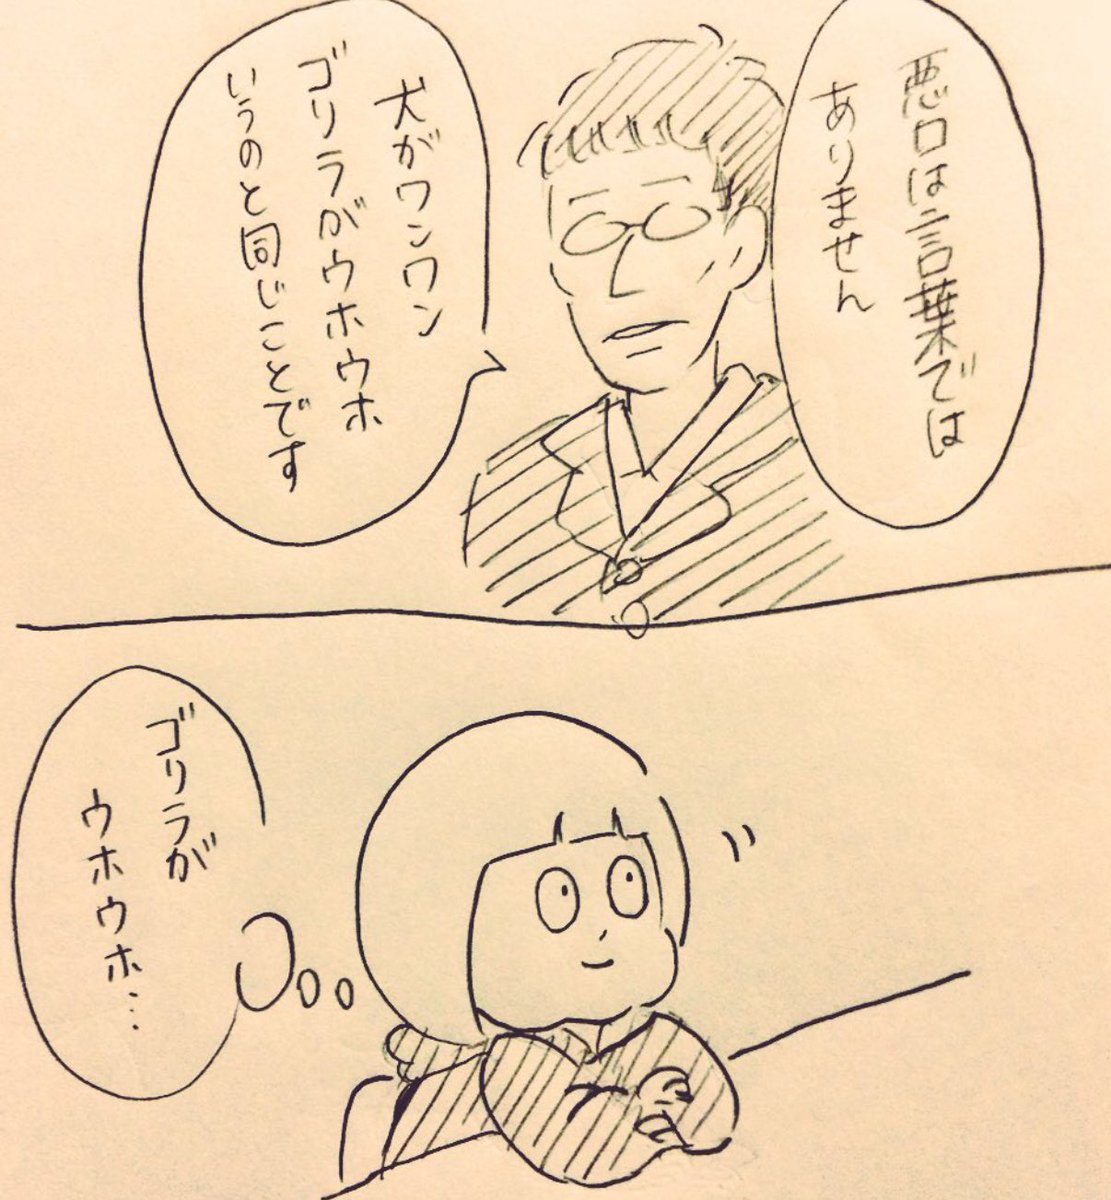 悪口は言葉では
ありません
犬がワンワン
ゴリラがウホウホ
いうのと同じことです
ゴリラが
ウホウホ…